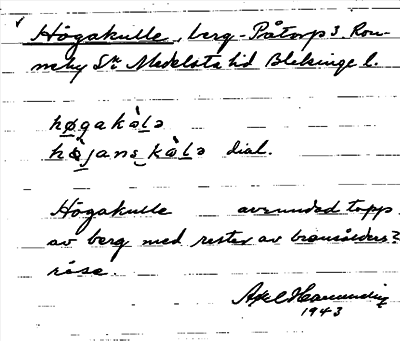 Högakulle, berg - Påtorp 3. Ron-
neby Sn. Medelsta hd Blekinge l.
høgakàlə
hø̀jans kàlə dial.
Högakulle avrundad topp
av berg med rester av bronsålders?
röse.
Axel Harmundin
1943